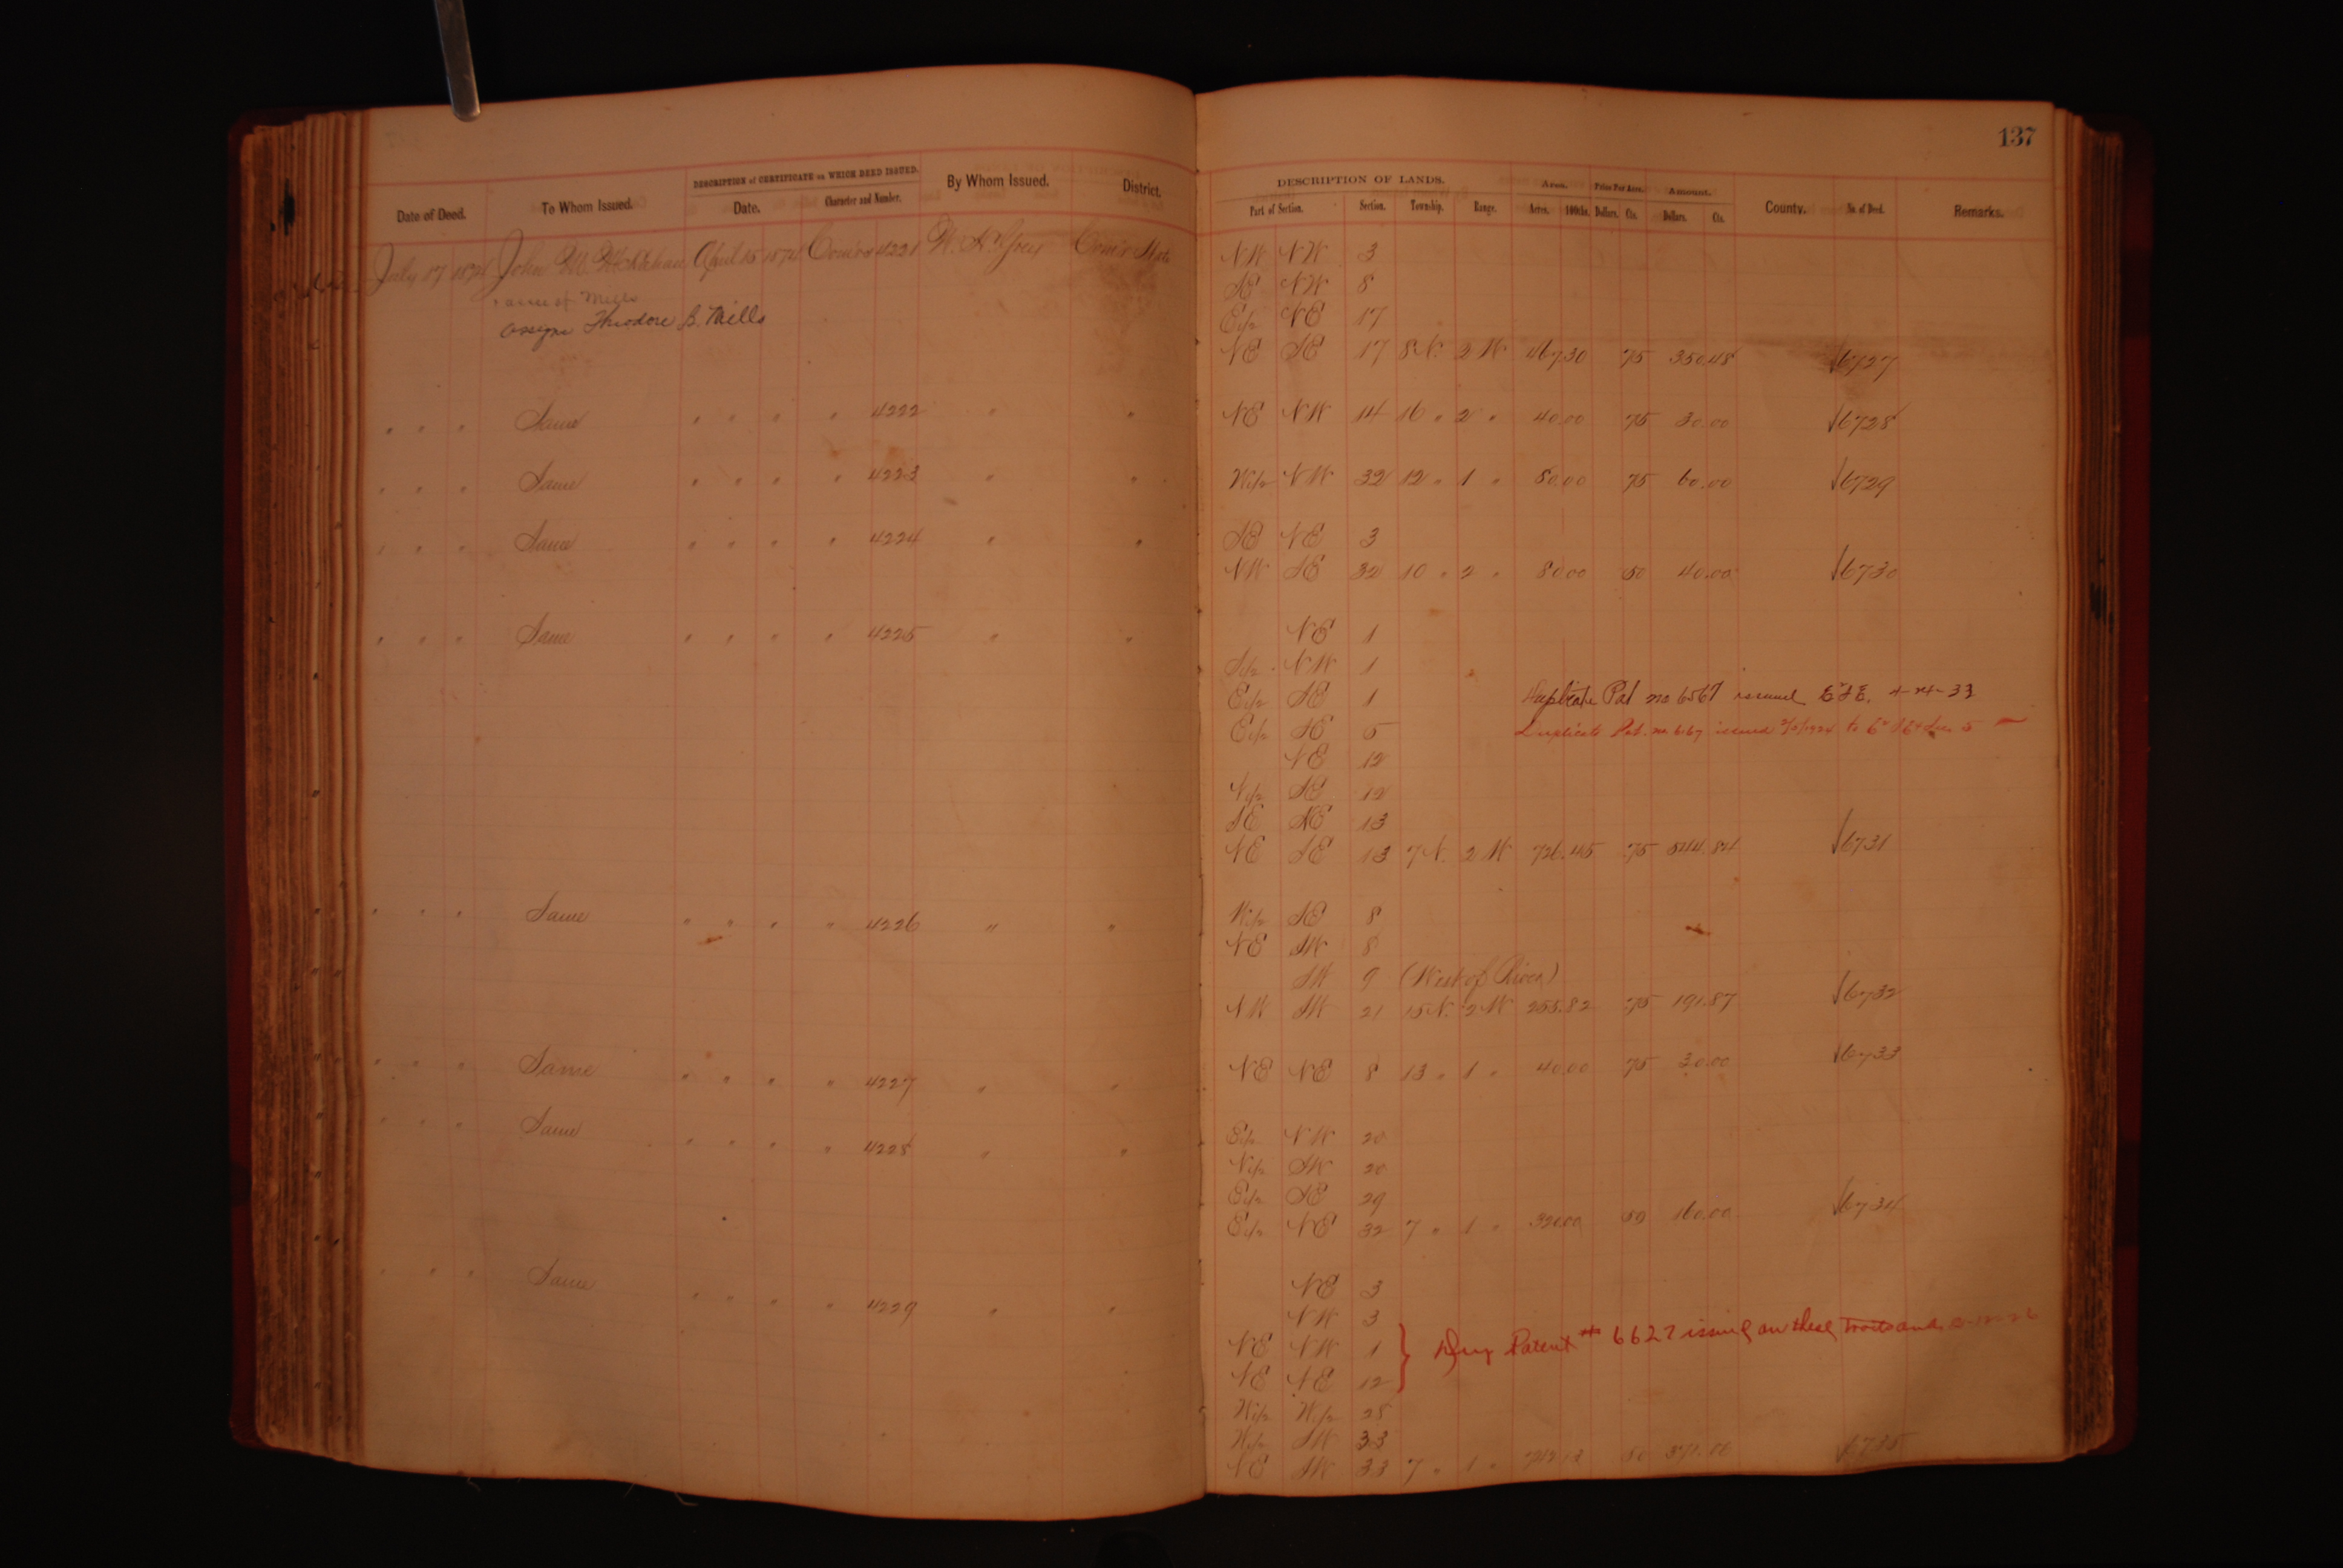 137
DESCRIPTION of CERTIFICATE on WHICH DEED ISSUED.
Date of Deed. To Whom Issued. Date. Character and Number. By Whom Issued. District.
DESCRIPTION OF LANDS. Area. Price Per Acre. Amount.
Part of Section. Section. Township. Range. Acres. 100ths. Dollars. Cts. Dollars. Cts. County. No. of Deed. Remarks.
July 17 1874 John M. April 15 1874 4221 W. R. Grey Com'r State NW NW 3
SE NW 8
assigns Theodore B. Mills E1/2 NE 17
NE SE 17 8 N. 2 W 467.30 75 350.48 6727
" " " Same " " " " 4222 " " NE NW 14 16 " 2 " 40.00 75 30.00 6728
" " " Same " " " " 4223 " " W1/2 NW 32 12 " 1 " 80.00 75 60.00 6729
" " " Same " " " " 4224 " " SE NE 3
NW SE 32 10 " 2 " 80.00 50 40.00 6730
" " " Same " " " " 4225 " " NE 1
S1/2 NW 1
E1/2 SE 1 Duplicate Pat no 6567 issued
E1/2 SE 5 Duplicate Pat. no issued
NE 12
SE 12
SE NE 13
NE SE 13 7 N. 2 W 726.45 75 544.84 6731
" " " Same " " " " 4226 " " W1/2 SE 8
NE SW 8
SW 9 (West of River)
NW SW 21 15 N. 2 W 255.82 75 191.87 6732
" " " Same " " " " 4227 " " NE NE 8 13 " 1 " 40.00 75 30.00 6733
" " " Same " " " " 4228 " " E1/2 NW 20
N1/2 SW 20
E1/2 SE 29
E1/2 NE 32 7 " 1 " 320.00 50 160.00 6734
" " " Same " " " " 4229 " " NE 3
NW 3
NE NW 1 } Patent # 6627 issued on these Tracts
NE 12
W1/2 W1/2 28
W1/2 SW 33
NE SW 33 7 " 1 " 50 6735